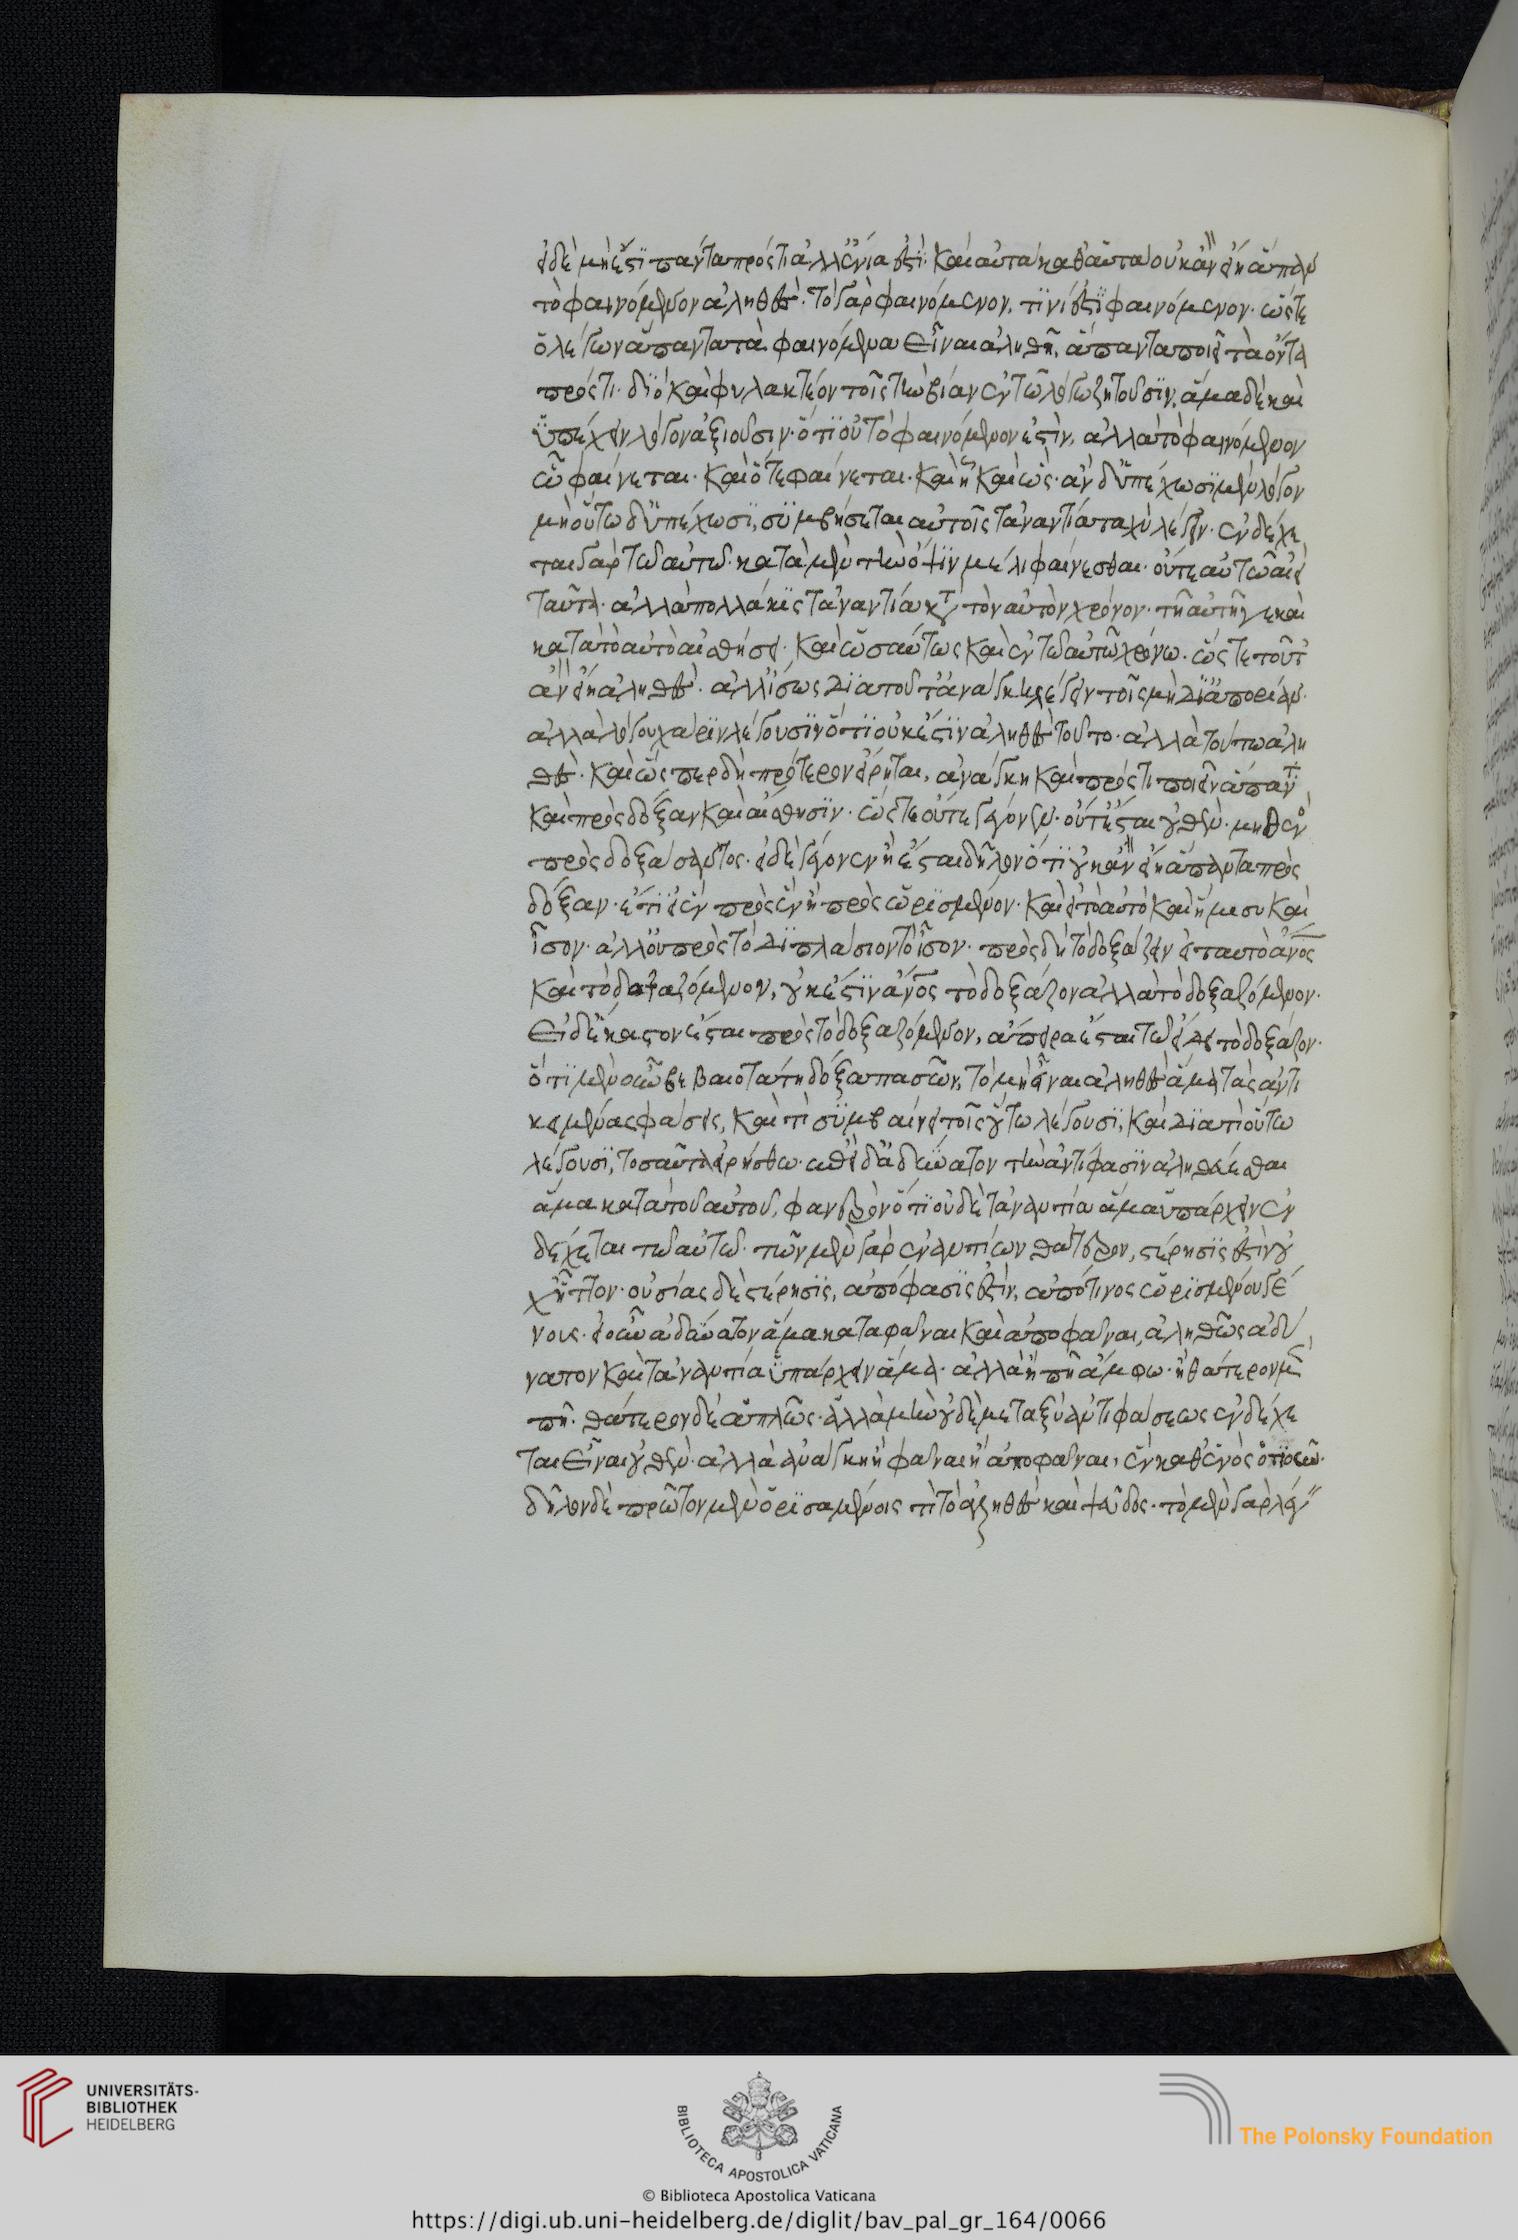 εἰ δὲ μὴ ἔστϊ πάντα πρός τι ἀλλ' ἔνιά ἐστὶ· καὶ αὐτὰ καθ' αὑτὰ οὐκ ἂν εἴη ἅπαν
τὸ φαινόμενον ἀληθές. τὸ γὰρ φαινόμενον, τϊνί ἐστϊ φαινόμενον· ὥστε
ὁ λέγων ἅπαντα τὰ φαινόμενα εἶναι ἀληθῆ, ἅπαντα ποιεῖ τὰ ὄντα
πρός τι· δϊὸ καὶ φυλακτέον τοῖς τὴν βίαν ἐν τῷ λόγῳ ζητοῦσϊν, ἅμα δὲ καὶ
ὑπέχειν λόγον ἀξιοῦσιν· ὅτϊ οὐ τὸ φαινόμενον ἐστὶν, ἀλλὰ τὸ φαινόμενον
ᾧ φαίνεται· καὶ ὅτε φαίνεται· καὶ ᾗ καὶ ὥς· ἂν δ' ὑπέχωσϊ μὲν λόγον
μὴ οὕτω δ' ὑπέχωσϊ, συμβήσεται αὑτοῖς τἀναντία ταχὺ λέγειν· ἐνδέχε
ται γὰρ τῷ αὐτῷ· κατὰ μὲν τὴν ὄψϊν μέλι φαίνεσθαι· οὔτε αὐτῷ ἀεὶ
ταῦτα· ἀλλὰ πολλάκϊς τἀναντία κτ τὸν αὐτὸν χρόνον· τῇ αὐτῇ γε καὶ
κατὰ τὸ αὐτὸ αἰσθήσει· καὶ ὡσαύτως καὶ ἐν τῷ αὐτῷ χρόνῳ. ὥστε τοῦτ'
ἂν εἴη ἀληθές. ἀλλ' ἴσως δϊὰ τοῦτ' ἀνάγκη λέγειν τοῖς μὴ δϊ' ἀπορίαν·
ἀλλὰ λόγου χάρϊν λέγουσϊν ὅτϊ οὐκ ἔστϊν ἀληθὲς τοῦτο· ἀλλὰ τούτῳ ἀλη
θές· καὶ ὥσπερ δὴ πρότερον εἴρηται, ἀνάγκη καὶ πρός τι ποιεῖν ἅπαντ
καὶ πρὸς δόξαν καὶ αἴσθησϊν· ὥστε οὔτε γέγονεν· οὔτ' ἔσται οὐθέν· μηθενὸ
πρὸς δοξάσαντος· εἰ δὲ γέγονεν ἢ ἔσται δῆλον ὅτϊ οὐκ ἂν εἴη ἅπαντα πρὸς
δόξαν· ἔτϊ εἰ ἓν πρὸς ἓν ἢ πρὸς ὡρϊσμένον· καὶ εἰ τὸ αὐτὸ καὶ ἥμισυ καὶ
ἴσον· ἀλλ' οὐ πρὸς τὸ δϊπλάσιον τὸ ἴσον· πρὸς δὴ τὸ δοξάζειν εἰ ταυτὸ ἄνος
καὶ τὸ δοξαζόμενον, οὐκ ἔστϊν ἄνος τὸ δοξάζον ἀλλὰ τὸ δοξαζόμενον·
Εἰ δ' ἕκαστον ἔσται πρὸς τὸ δοξαζόμενον, ἄπειρα ἔσται τῷ εἴδει τὸ δοξάζον·
ὅτϊ μὲν οὖν βεβαιοτάτη δόξα πασῶν, τὸ μὴ εἶναι ἀληθὲς ἅμα τὰς ἀντι
κειμένας φάσεις, καὶ τί συμβαίνει τοῖς οὕτω λέγουσϊ, καὶ δϊατί οὕτω
λέγουσϊ, τοσαῦτα εἰρήσθω· ἐπεὶ δ' ἀδύνατον τὴν ἀντίφασϊν ἀληθεύεσθαι
ἅμα κατὰ τοῦ αὐτοῦ, φανερὸν ὅτϊ οὐδὲ τἀναντία ἅμα ὑπάρχειν ἐν
δέχεται τῷ αὐτῷ· τῶν μὲν γὰρ ἐναντίων θάτερον, στέρησϊς ἐστὶν οὐ
χ' ἧττον· οὐσίας δὲ στέρησϊς, ἀπόφασϊς ἐστὶν, ἀπό τινος ὡρϊσμένου γέ
νους· εἰ οὖν ἀδύνατον ἅμα καταφάναι καὶ ἀποφάναι, ἀληθῶς ἀδύ
νατον καὶ τἀναντία ὑπάρχειν ἅμα· ἀλλ' ἢ πῇ ἄμφω· ἢ θάτερον μὲ
πῇ· θάτερον δὲ ἁπλῶς· ἀλλὰ μὴν οὐδὲ μεταξὺ ἀντιφάσεως ἐνδέχε
ται εἶναι οὐθέν· ἀλλὰ ἀνάγκη ἢ φάναι ἢ ἀποφάναι, ἓν καθ' ἑνὸς ὁτϊοῦν·
δῆλον δὲ πρῶτον μὲν ὁρϊσαμένοις τί τὸ ἀληθὲς καὶ ψεῦδος· τὸ μὲν γὰρ λέγ
UNIVERSITÄTS-
BIBLIOTHEK
HEIDELBERG
BIBLIOTECA APOSTOLICA VATICANA
The Polonsky Foundation
© Biblioteca Apostolica Vaticana
https://digi.ub.uni-heidelberg.de/diglit/bav_pal_gr_164/0066